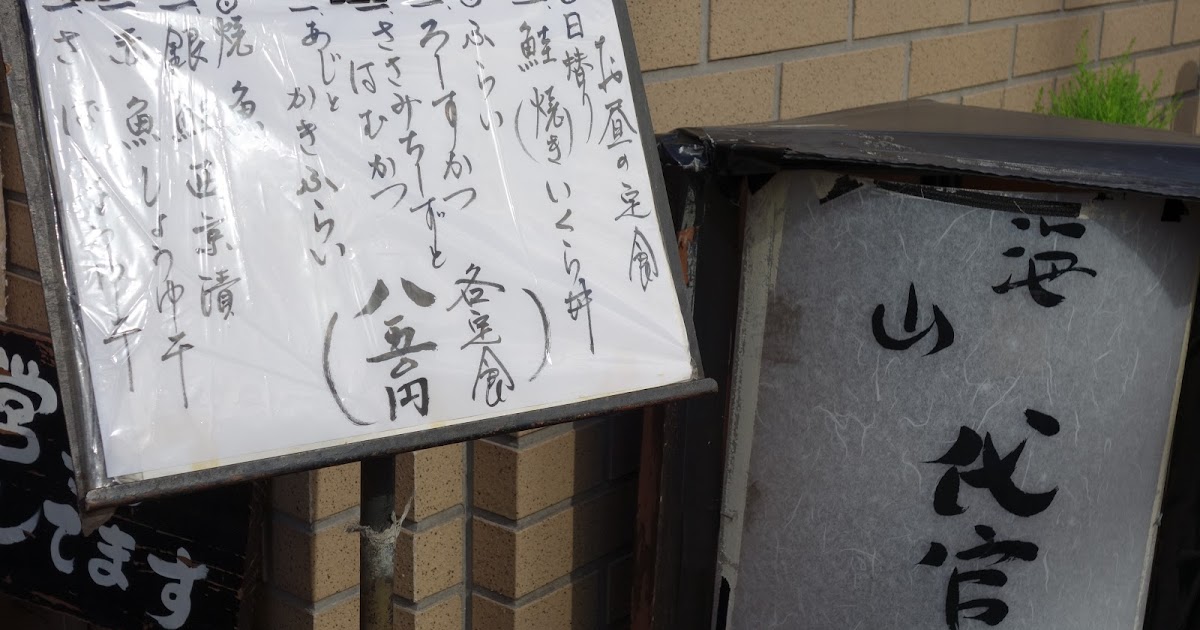 お昼の定食
日替り
一、鮭(焼き)いくら丼
ふらい
一、ろーすかつ
一、ささみちーずと
はむかつ
一、あじと
かきふらい
焼魚
一、銀鮭西京漬
赤魚しょうゆ干
一、さば
干
(各定食
八五〇円)
海
山
代官
営
してます